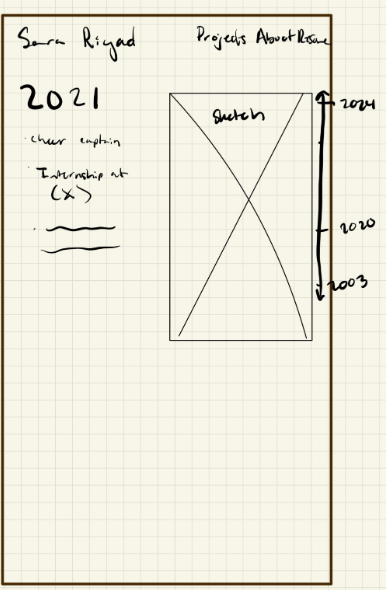 Sara Riyad
Projects About Resume
2021
cheer captain
Internship at
(x)
Sketch
2024
2020
2003